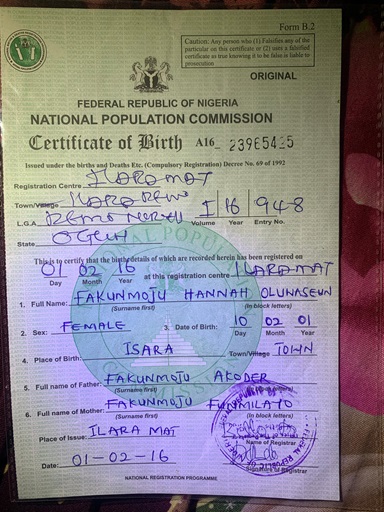 Form B.2
Caution: Any person who (1) Falsifies any of the
particular on this certificate or (2) uses a falsified
certificate as true knowing it to be false is liable to
prosecution
ORIGINAL
FEDERAL REPUBLIC OF NIGERIA
NATIONAL POPULATION COMMISSION
Certificate of Birth A16_
Issued under the births and Deaths Etc. (Compulsory Registration) Decree No. 69 of 1992
Registration Centre ILARA MAT
Town/Village ILARA REMO
L.G.A. REMO NORTH I 16 948
Volume Year Entry No.
State OGUN
This is to certify that the birthdetails of which are recorded herein has been registered on
01 02 16 at this registration centre ILARA MAT
Day Month Year
1. Full Name: FAKUNMOJU HANNAH OLUNASEUN
(Surname first) (In block letters)
2. Sex: FEMALE 3. Date of Birth: 10 02 01
Day Month Year
4. Place of Birth: ISARA Town/Village TOWN
5. Full name of Father: FAKUNMOJU AKODER
(Surname first) (In block letters)
6. Full name of Mother: FAKUNMOJU
(Surname first) (In block letters)
Place of Issue: ILARA MAT
Name of Registrar
Date: 01-02-16
Signature of Registrar
NATIONAL REGISTRATION PROGRAMME